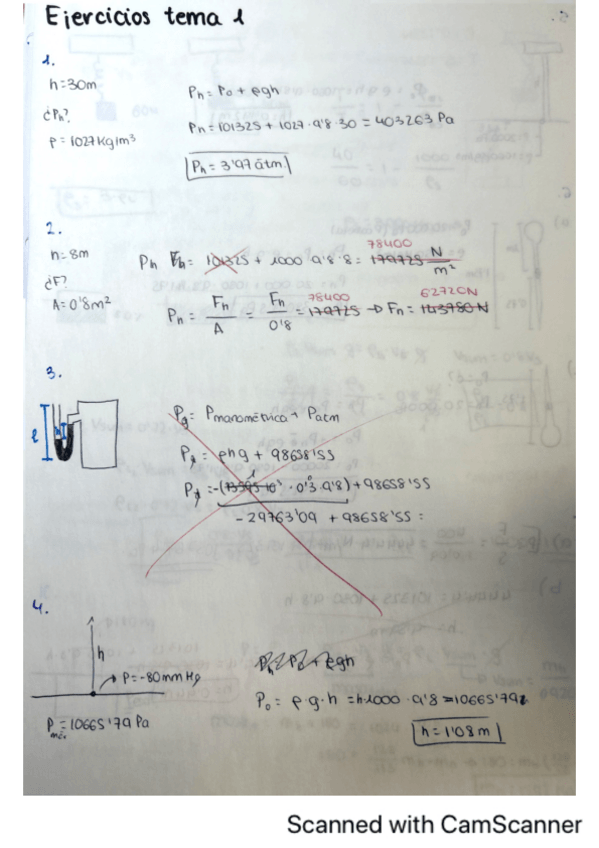 Ejercicios tema 1
1.
h=30m
¿Ph?
ρ=1027kg/m³
Ph = Po + ρgh
Ph = 101325 + 1027·9'8·30 = 403263 Pa
Ph = 3'97 atm
2.
h=8m
¿F?
A=0'8m²
Ph Fh = 101325 + 1000·9'8·8 = 179725 N/m²
78400
Ph = Fh/A = Fh/0'8 = 179725 → Fh = 143780 N
78400 62720N
3.
l
Pg = Pmanométrica + Patm
= ρhg + 98658'55
= -(13595·10³·0'3·9'8) + 98658'55
- 29763'09 + 98658'55 =
4.
h
P=-80mmHg
P = 10665'79 Pa
+ ρgh
Po = ρ·g·h = h·1000·9'8 = 10665'79
h = 1'08m
Scanned with CamScanner